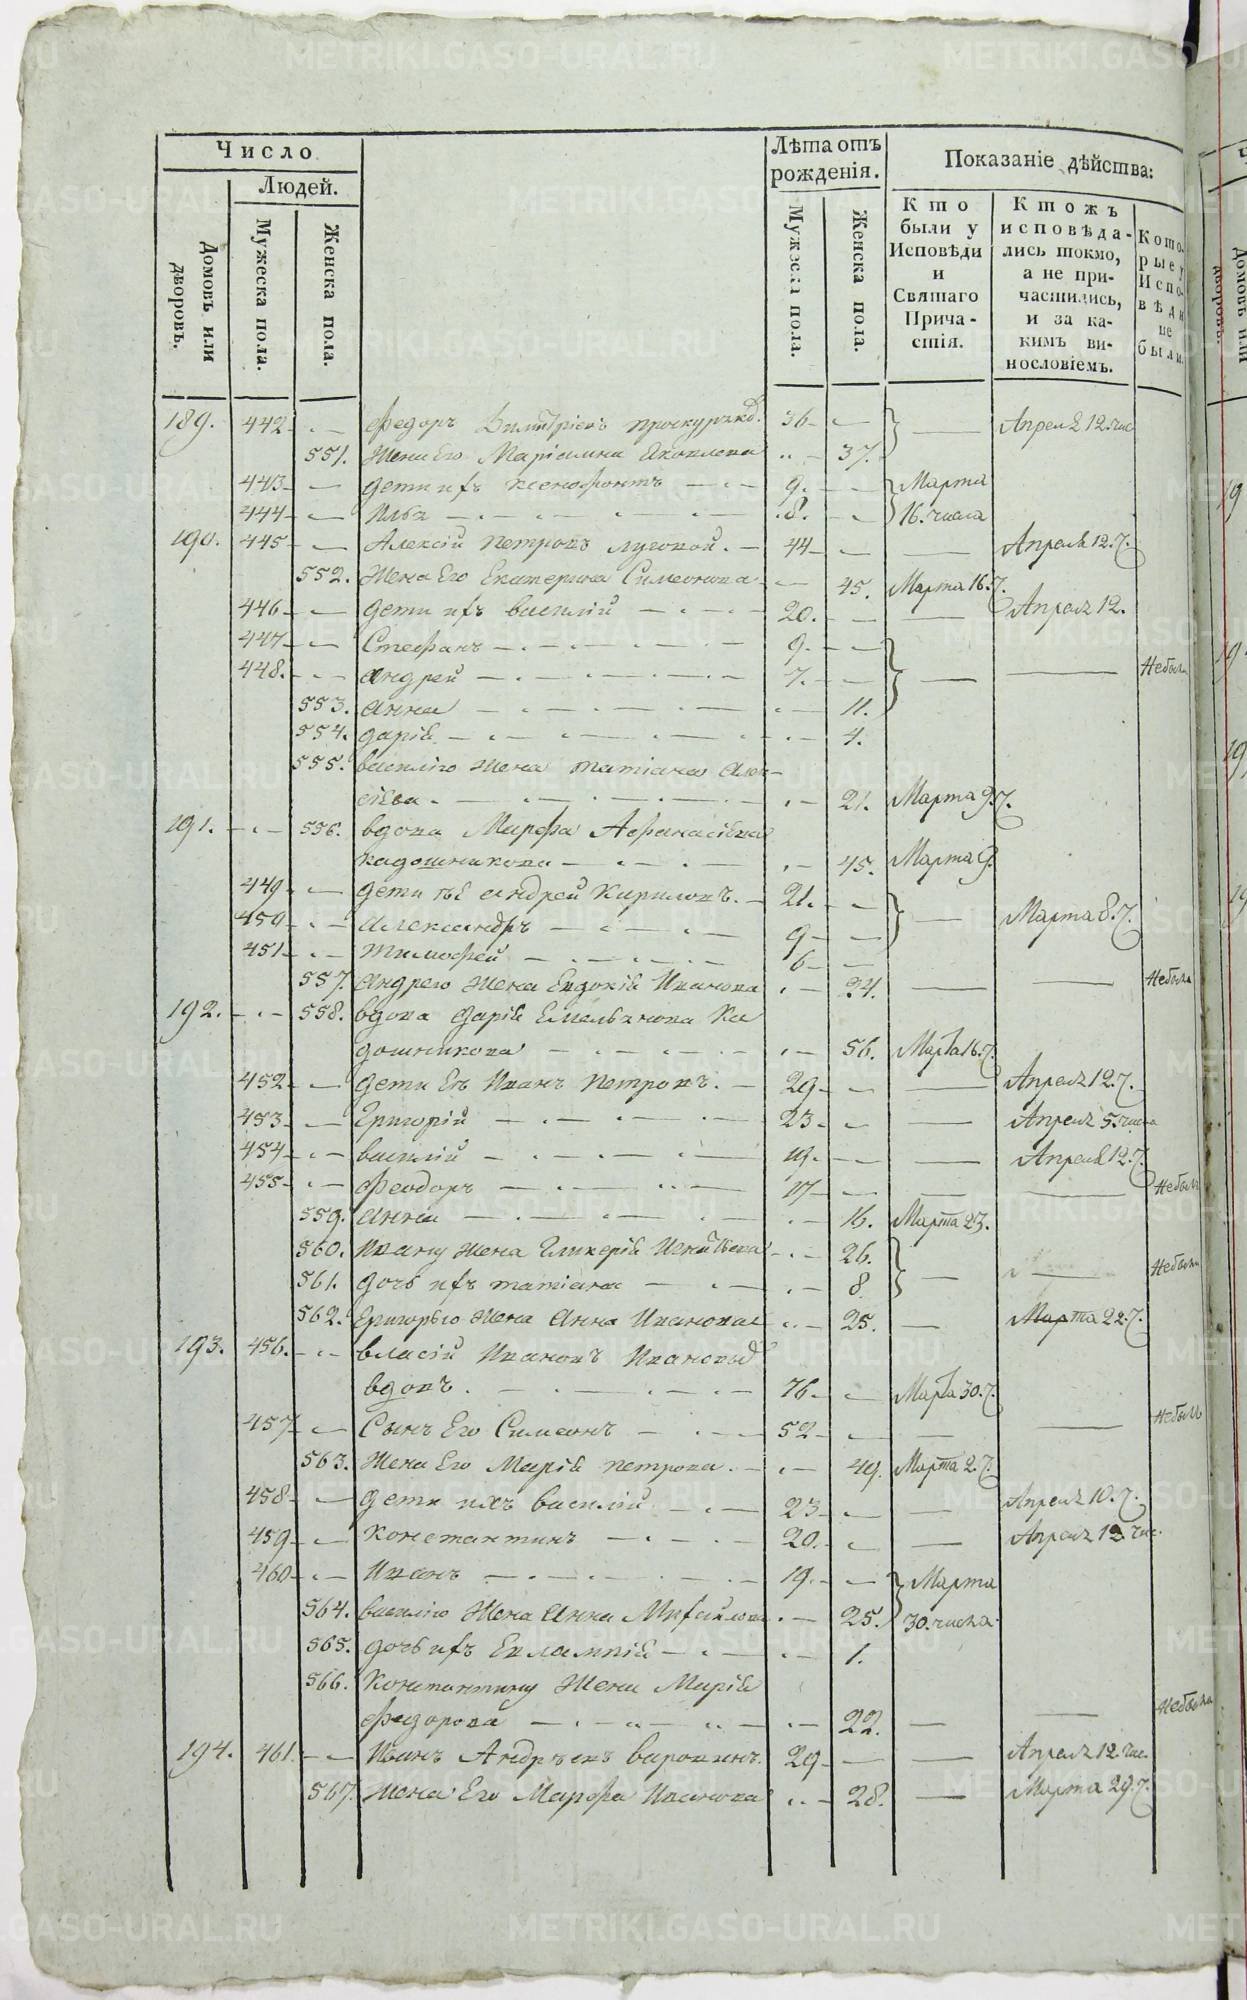 Число
Людей.
Домовъ или дворовъ.
Мужеска пола.
Женска пола.
Лѣта отъ рожденія.
Мужеска пола.
Женска пола.
Показаніе дѣйства:
Кто были у Исповѣди и Святаго Причастія.
Ктожъ исповѣдались токмо, а не причастились, и за какимъ винословіемъ.
Которые у Исповѣди не были.
189. 442 Федоръ 36 Апреля 12. чис
551. Жена Его Маріамна Яковлева 37.
443 дети ихъ Ксенофонтъ 9. Марта
444 Илья 8. 16. числа
190. 445 Алексій Петровъ Луговой. 44 Апреля 12. ч.
552. Жена Его Екатерина Симеонова 45. Марта 16. ч.
446 дети ихъ василій 20. Апреля 12.
447 Стефанъ 9.
448. андрей 7. Небыли
553. анна 11.
554. дарія 4.
555. василію жена татіана Алек-
сіева. 21. Марта 9. ч.
191. 556. вдова Марфа Афанасіева
кадошникова 45. Марта 9.
449 дети ея андрей Кириловъ. 21.
450 александръ 9 Марта 8. ч.
451 тимофей 6
557. андрею жена Евдокія Иванова 24. Небыла
192. 558. вдова дарія Емельянова Ка
дошникова 56. Марта 16. ч.
452 дети Ея Иванъ Петровъ. 29 Апреля 12. ч.
453 Григорій 23 Апреля 5. числа
454 василій 19. Апреля 12. ч.
455 феодоръ 17 Небылъ
559. анна 16. Марта 23.
560. Ивану жена Гликерія 26.
561. дочь ихъ татіана 8. Небыли
562. Григорью жена Анна Иванова 25. Марта 22. ч.
193. 456. власій Ивановъ
вдовъ. 76 Марта 30. ч.
457 Сынъ Его Симеонъ 52 Небылъ
563. Жена Его Марія петрова. 49. Марта 2. ч.
458 дети ихъ василій 23 Апреля 10. ч.
459 Константинъ 20. Апреля 12 чис.
460 Иванъ 19. Марта
564. василію жена Анна Михайлова 25. 30. числа
565. дочь ихъ Евлампія 1.
566. Константину жена Марія
федорова 22. Небыла
194. 461. Иванъ Андрѣевъ 29 Апреля 12. чис.
567. Жена Его Марфа Иванова 28. Марта 29. ч.
METRIKI.GASO-URAL.RU